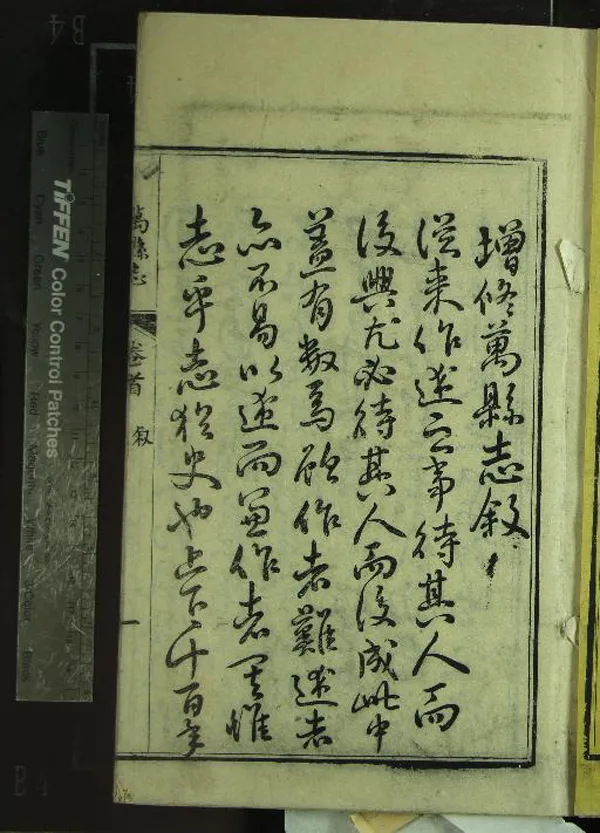 增修萬縣志敘
從来作述之事待其人而
後興尤必待其人而後成此中
蓋有數焉顧作者難述者
亦不易以述而兼作者其惟
志乎志猶史也上下千百年
萬縣志
卷首
叙
一
TIFFEN Color Control Patches
Blue
Cyan
Green
Yellow
Red
Magenta
B4
B4